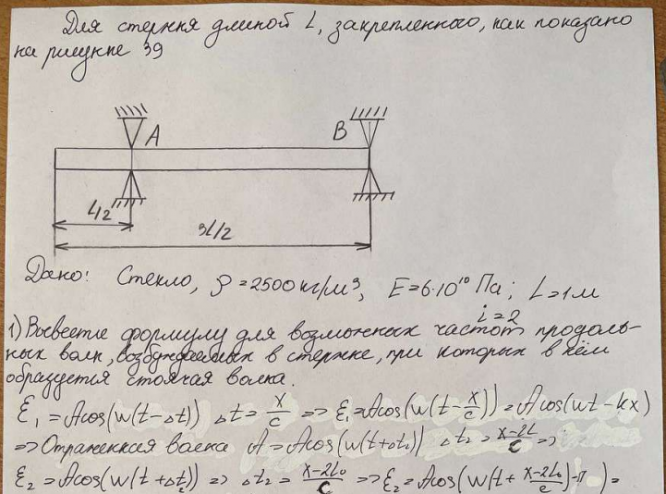 Для стержня длиной L, закрепленного, как показано
на рисунке 39
A
B
L/2
3L/2
Дано: Стекло, ρ = 2500 кг/м³, E = 6·10¹⁰ Па; L = 1 м
i = 2
1) Вывести формулу для возможных частот продоль-
ных волн, возбуждаемых в стержне, при которых в нём
образуется стоячая волна.
ξ₁ = Acos(w(t-Δt)) Δt = x/c => ξ₁ = Acos(w(t - x/c)) = Acos(wt - kx)
=> Отраженная волна A = Acos(w(t+Δt₂) Δt₂ = x-2L/c =>
ξ₂ = Acos(w(t + Δt₂)) => Δt₂ = x-2L₀/c => ξ₂ = Acos(w(t + x-2L₀/c) - π) =